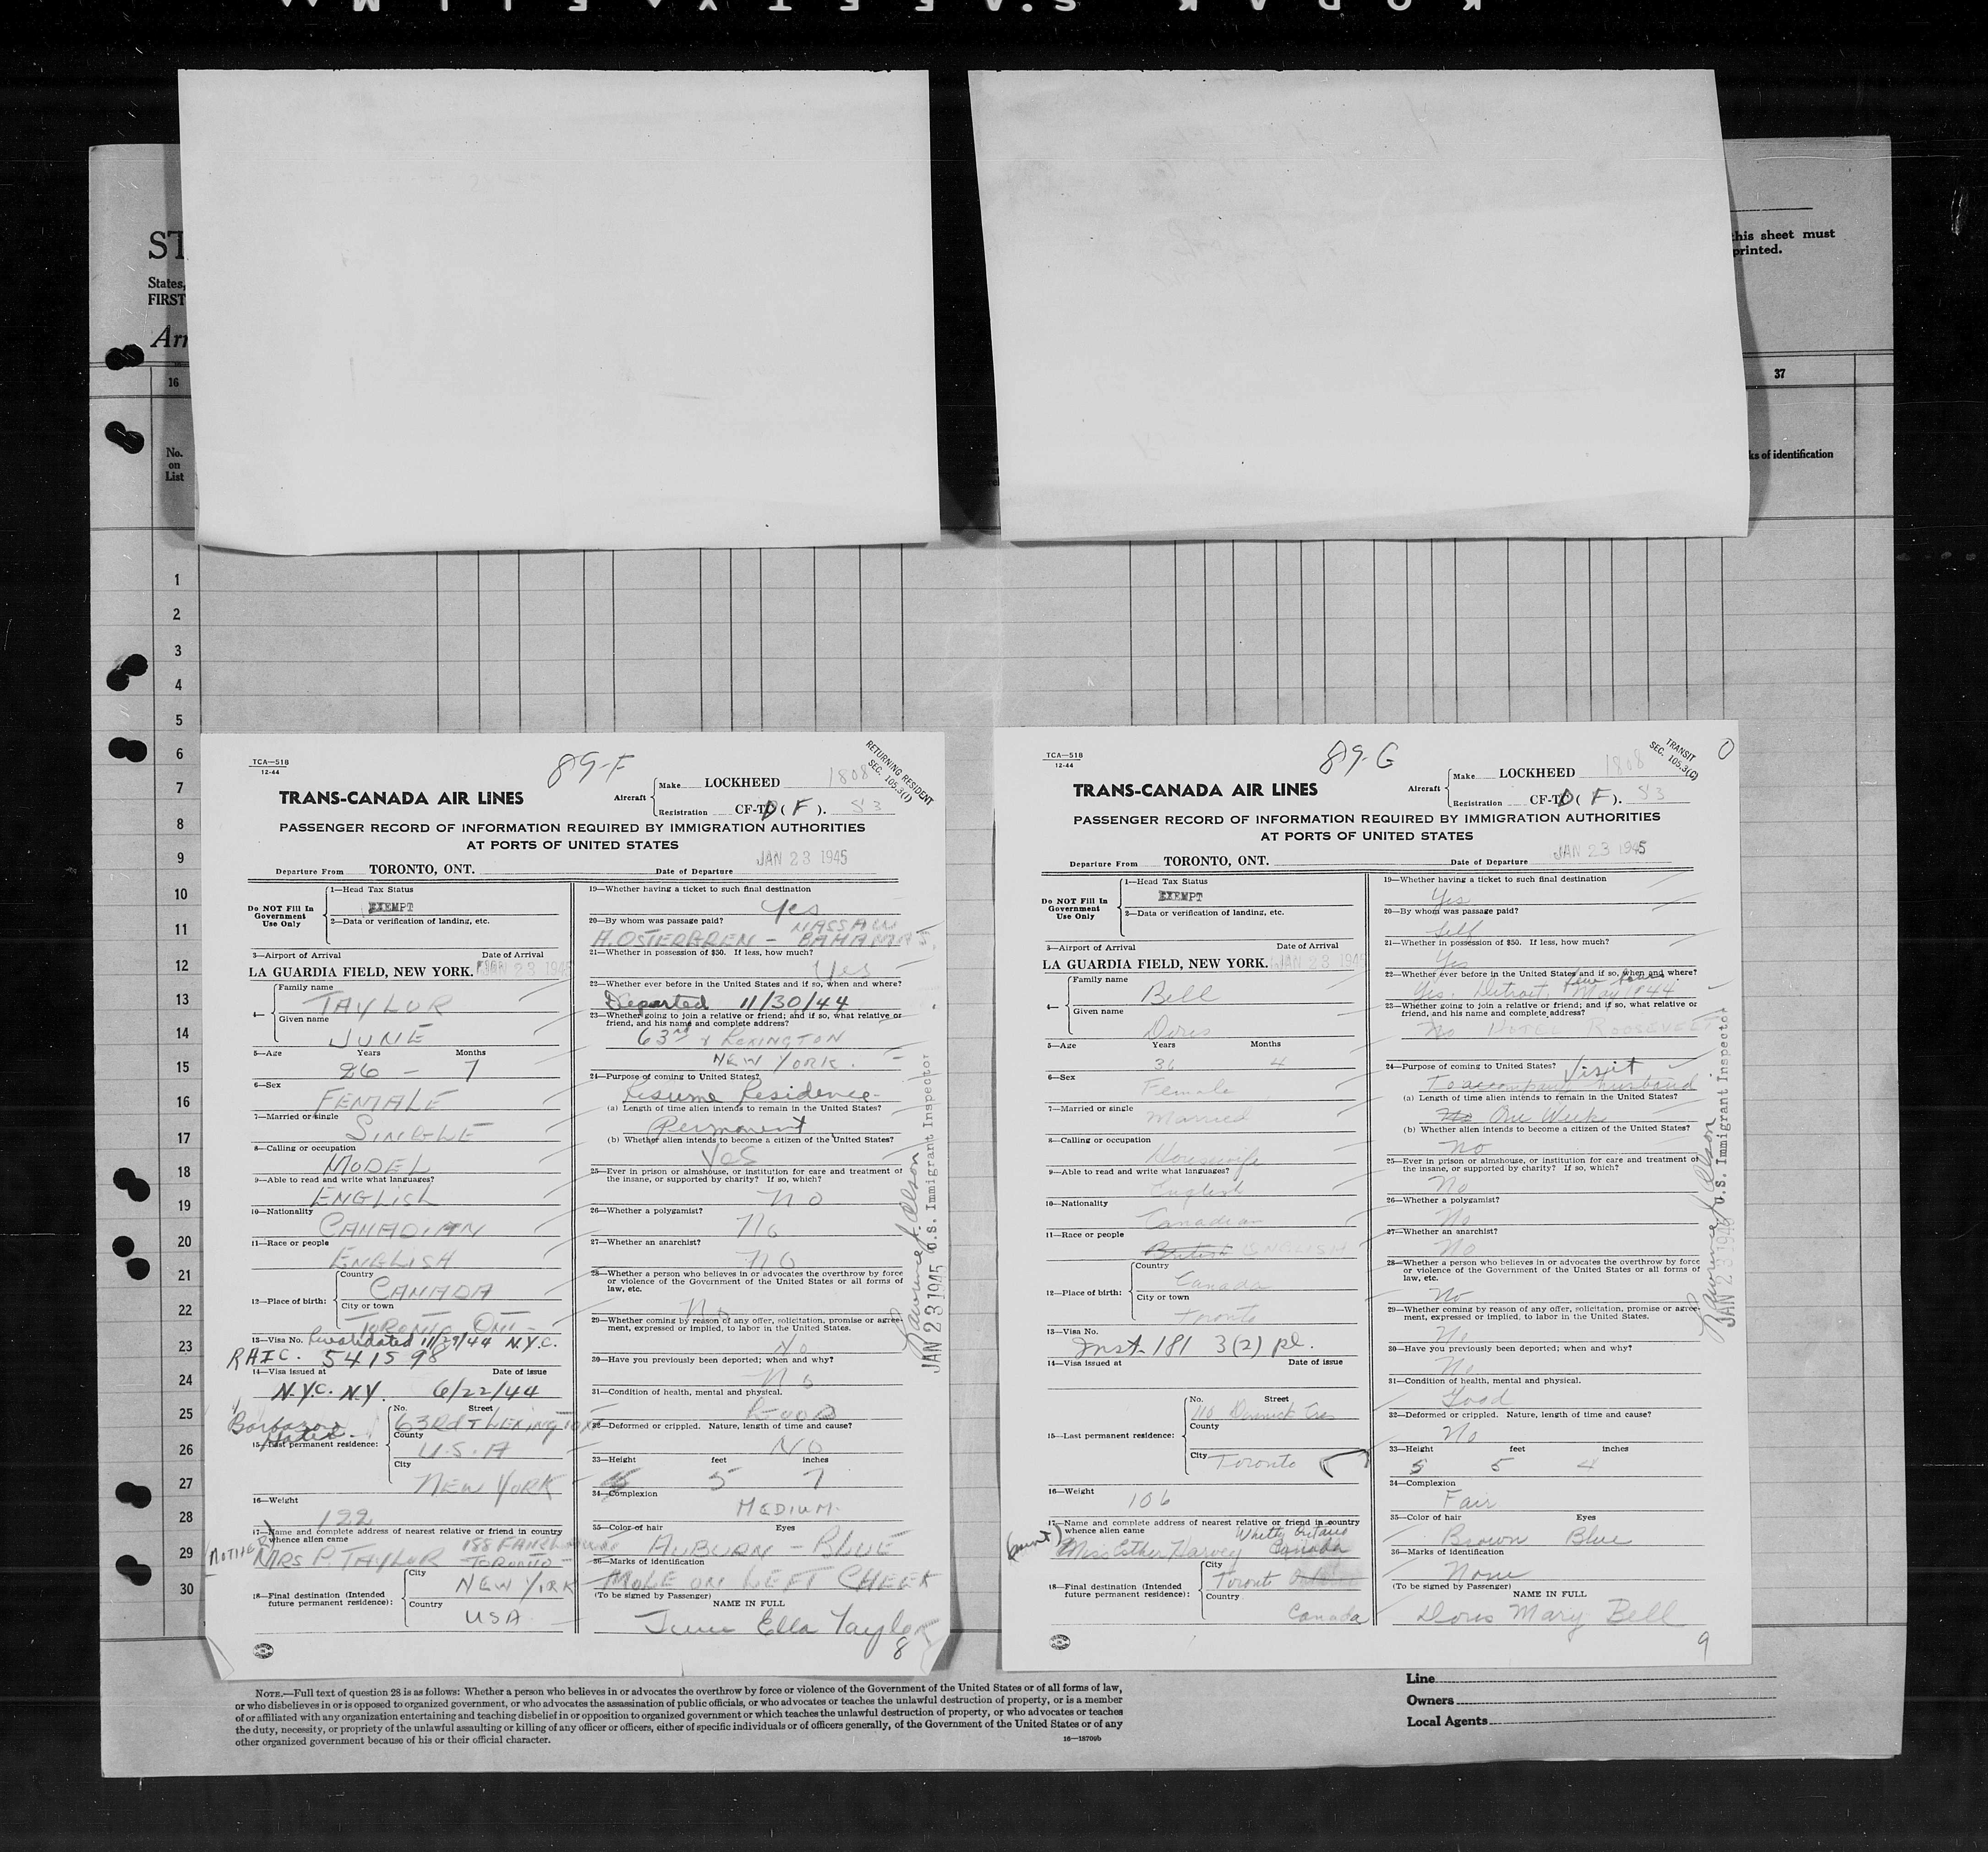 ST
States,
FIRST
Arr
16
No.
on
List
this sheet must
printed.
37
ks of identification
1
2
3
4
5
6
7
8
9
10
11
12
13
14
15
16
17
18
19
20
21
22
23
24
25
26
27
28
29
30
TCA—518
12-44
89-F
RETURNING RESIDENT
SEC. 105.3(1)
TRANS-CANADA AIR LINES
Aircraft
Make LOCKHEED 1808
Registration CF-TD ( F ). 53
PASSENGER RECORD OF INFORMATION REQUIRED BY IMMIGRATION AUTHORITIES
AT PORTS OF UNITED STATES
Departure From TORONTO, ONT. Date of Departure JAN 23 1945
Do NOT Fill In
Government
Use Only
1—Head Tax Status
EXEMPT
2—Data or verification of landing, etc.
3—Airport of Arrival Date of Arrival
LA GUARDIA FIELD, NEW YORK. JAN 23 1945
4—
Family name
TAYLOR
Given name
JUNE
5—Age Years Months
26 — 7
6—Sex
FEMALE
7—Married or single
SINGLE
8—Calling or occupation
MODEL
9—Able to read and write what languages?
ENGLISH
10—Nationality
CANADIAN
11—Race or people
ENGLISH
12—Place of birth:
Country
CANADA
City or town
TORONTO ONT-
13—Visa No. Revalidated 11/29/44 N.Y.C.
R.A.I.C. 541598
14—Visa issued at Date of issue
N.Y.C. N.Y. 6/22/44
Barbazon
Hotel.
15—Last permanent residence:
No. Street
63RD & LEXINGTON
County
U.S.A
City
NEW YORK
16—Weight
122
17—Name and complete address of nearest relative or friend in country
whence alien came
(MOTHER) MRS P. TAYLOR 188
TORONTO-
18—Final destination (Intended
future permanent residence):
City
NEW YORK
Country
USA
19—Whether having a ticket to such final destination
Yes
20—By whom was passage paid? NASSAU
H. OSTERGREN - BAHAMAS.
21—Whether in possession of $50. If less, how much?
Yes
22—Whether ever before in the United States and if so, when and where?
Departed 11/30/44
23—Whether going to join a relative or friend; and if so, what relative or
friend, and his name and complete address?
63rd & LEXINGTON
NEW YORK.
24—Purpose of coming to United States?
Resume Residence
(a) Length of time alien intends to remain in the United States?
Permanent
(b) Whether alien intends to become a citizen of the United States?
Yes
25—Ever in prison or almshouse, or institution for care and treatment of
the insane, or supported by charity? If so, which?
No
26—Whether a polygamist?
No
27—Whether an anarchist?
No
28—Whether a person who believes in or advocates the overthrow by force
or violence of the Government of the United States or all forms of
law, etc.
No
29—Whether coming by reason of any offer, solicitation, promise or agree-
ment, expressed or implied, to labor in the United States.
No
30—Have you previously been deported; when and why?
No
31—Condition of health, mental and physical.
GOOD
32—Deformed or crippled. Nature, length of time and cause?
NO
33—Height feet inches
5 7
34—Complexion
MEDIUM.
35—Color of hair Eyes
AUBURN - BLUE
36—Marks of identification
MOLE ON LEFT CHEEK
(To be signed by Passenger)
NAME IN FULL
June Ella Taylor
8
JAN 23 1945 U.S. Immigrant Inspector
TCA—518
12-44
89-G
TRANSIT
SEC. 105.3(C)
0
TRANS-CANADA AIR LINES
Aircraft
Make LOCKHEED 1808
Registration CF-TD ( F ). 53
PASSENGER RECORD OF INFORMATION REQUIRED BY IMMIGRATION AUTHORITIES
AT PORTS OF UNITED STATES
Departure From TORONTO, ONT. Date of Departure JAN 23 1945
Do NOT Fill In
Government
Use Only
1—Head Tax Status
EXEMPT
2—Data or verification of landing, etc.
3—Airport of Arrival Date of Arrival
LA GUARDIA FIELD, NEW YORK. JAN 23 1945
4—
Family name
Bell
Given name
Doris
5—Age Years Months
36 4
6—Sex
Female
7—Married or single
Married
8—Calling or occupation
Housewife
9—Able to read and write what languages?
English
10—Nationality
Canadian
11—Race or people
British ENGLISH
12—Place of birth:
Country
Canada
City or town
Toronto
13—Visa No.
Inst. 181 3(2) pl.
14—Visa issued at Date of issue
15—Last permanent residence:
No. Street
110
County
City
Toronto
16—Weight
106
17—Name and complete address of nearest relative or friend in country
whence alien came Whitby Ontario
(aunt) Miss Esther Harvey Canada
18—Final destination (Intended
future permanent residence):
City
Toronto
Country
Canada
19—Whether having a ticket to such final destination
Yes
20—By whom was passage paid?
Self
21—Whether in possession of $50. If less, how much?
Yes
22—Whether ever before in the United States and if so, when and where?
Yes. Detroit, May 1944
23—Whether going to join a relative or friend; and if so, what relative or
friend, and his name and complete address?
No HOTEL ROOSEVELT
24—Purpose of coming to United States? Visit
To accompany husband
(a) Length of time alien intends to remain in the United States?
One Week
(b) Whether alien intends to become a citizen of the United States?
No
25—Ever in prison or almshouse, or institution for care and treatment of
the insane, or supported by charity? If so, which?
No
26—Whether a polygamist?
No
27—Whether an anarchist?
No
28—Whether a person who believes in or advocates the overthrow by force
or violence of the Government of the United States or all forms of
law, etc.
No
29—Whether coming by reason of any offer, solicitation, promise or agree-
ment, expressed or implied, to labor in the United States.
No
30—Have you previously been deported; when and why?
No
31—Condition of health, mental and physical.
Good
32—Deformed or crippled. Nature, length of time and cause?
No
33—Height feet inches
5 5 4
34—Complexion
Fair
35—Color of hair Eyes
Brown Blue
36—Marks of identification
None
(To be signed by Passenger)
NAME IN FULL
Doris Mary Bell
9
JAN 23 1945 U.S. Immigrant Inspector
NOTE.—Full text of question 28 is as follows: Whether a person who believes in or advocates the overthrow by force or violence of the Government of the United States or of all forms of law,
or who disbelieves in or is opposed to organized government, or who advocates the assassination of public officials, or who advocates or teaches the unlawful destruction of property, or is a member
of or affiliated with any organization entertaining and teaching disbelief in or opposition to organized government or which teaches the unlawful destruction of property, or who advocates or teaches
the duty, necessity, or propriety of the unlawful assaulting or killing of any officer or officers, either of specific individuals or of officers generally, of the Government of the United States or of any
other organized government because of his or their official character.
16—18709b
Line
Owners
Local Agents